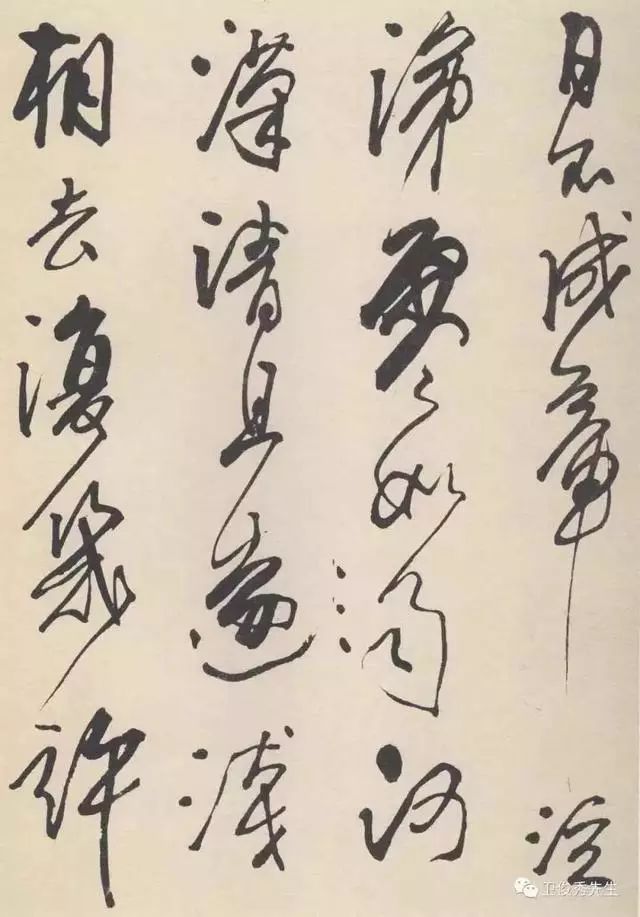 日不成章泣
涕零如雨河
漢清且淺
相去復幾許
卫俊秀先生